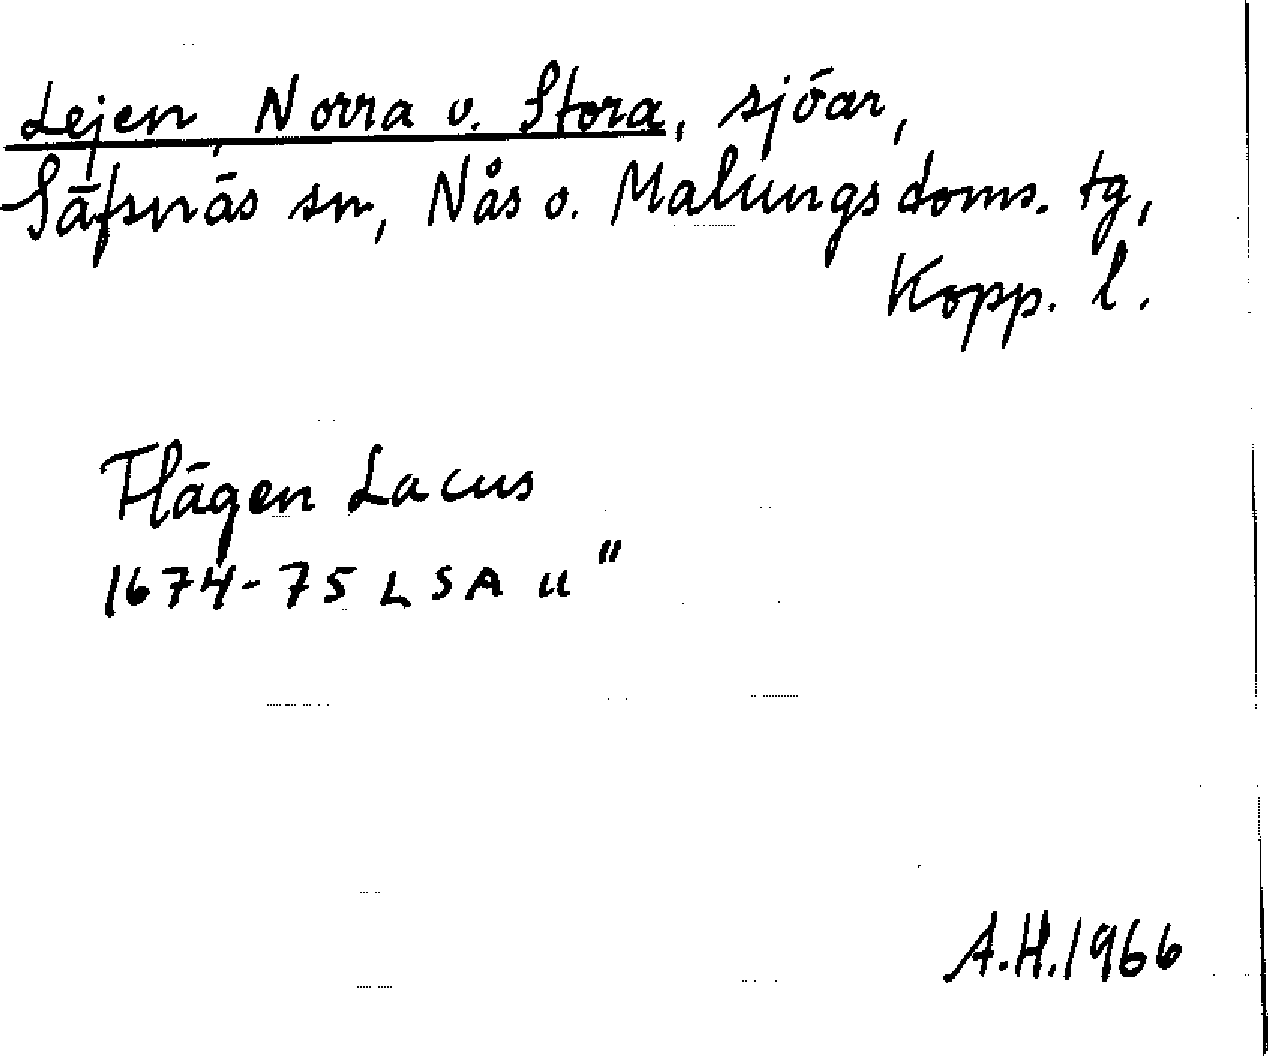 Lejen, Norra o. Stora, sjöar,
Säfsnäs sn, Nås o. Malungs doms. tg,
Kopp. l.
Flägen Lacus
1674-75 LSA u "
A.H. 1966